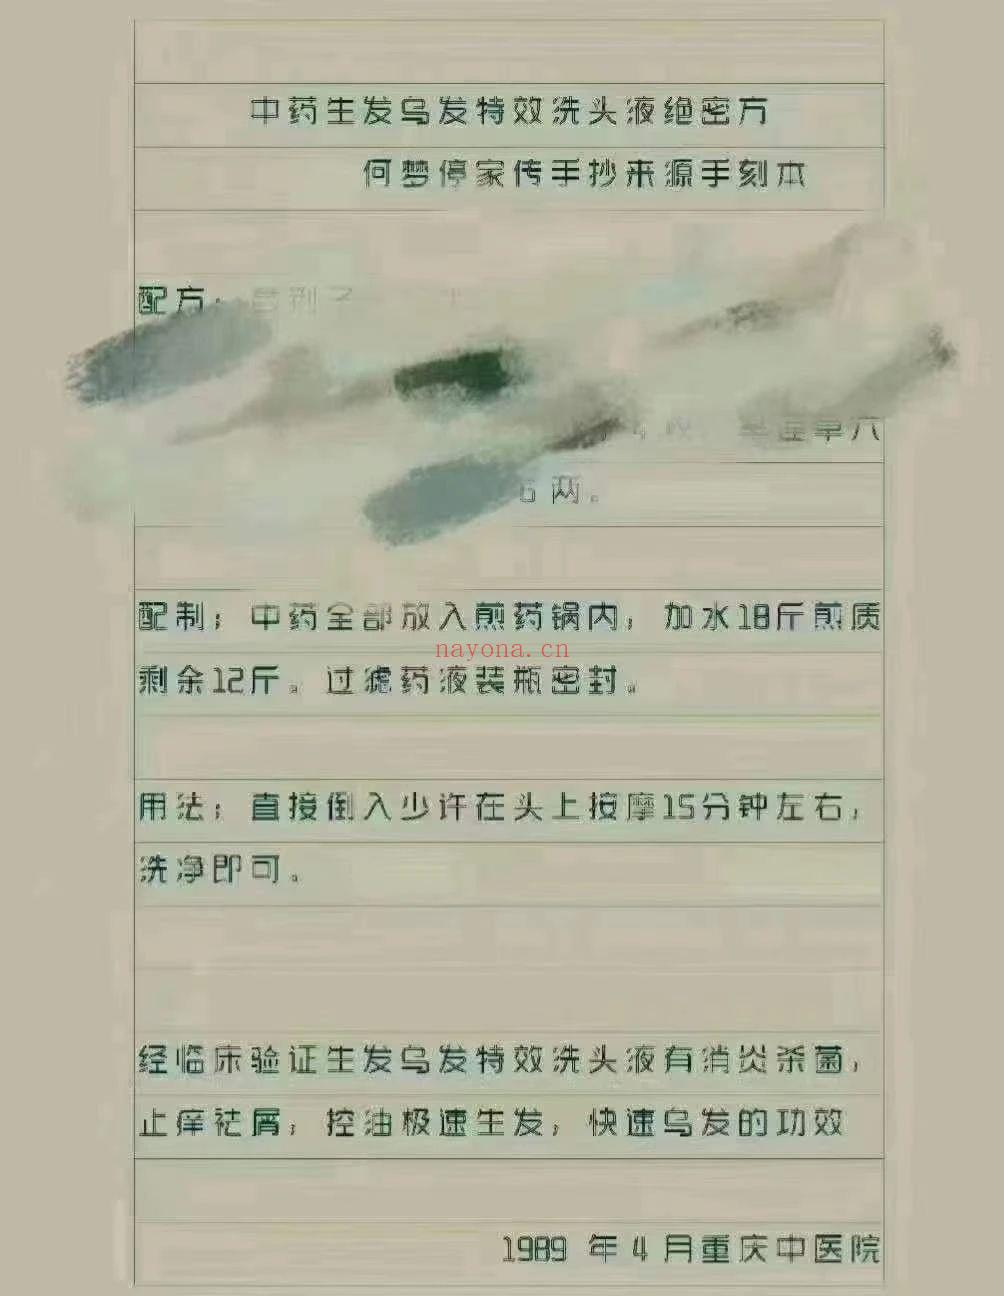 中药生发乌发特效洗头液绝密方
何梦停家传手抄来源手刻本
配方:
旱莲草六
6两。
配制；中药全部放入煎药锅内，加水18斤煎质
nayona.cn
剩余12斤。过滤药液装瓶密封。
用法；直接倒入少许在头上按摩15分钟左右，
洗净即可。
经临床验证生发乌发特效洗头液有消炎杀菌，
止痒祛屑，控油极速生发，快速乌发的功效
1989 年 4 月重庆中医院